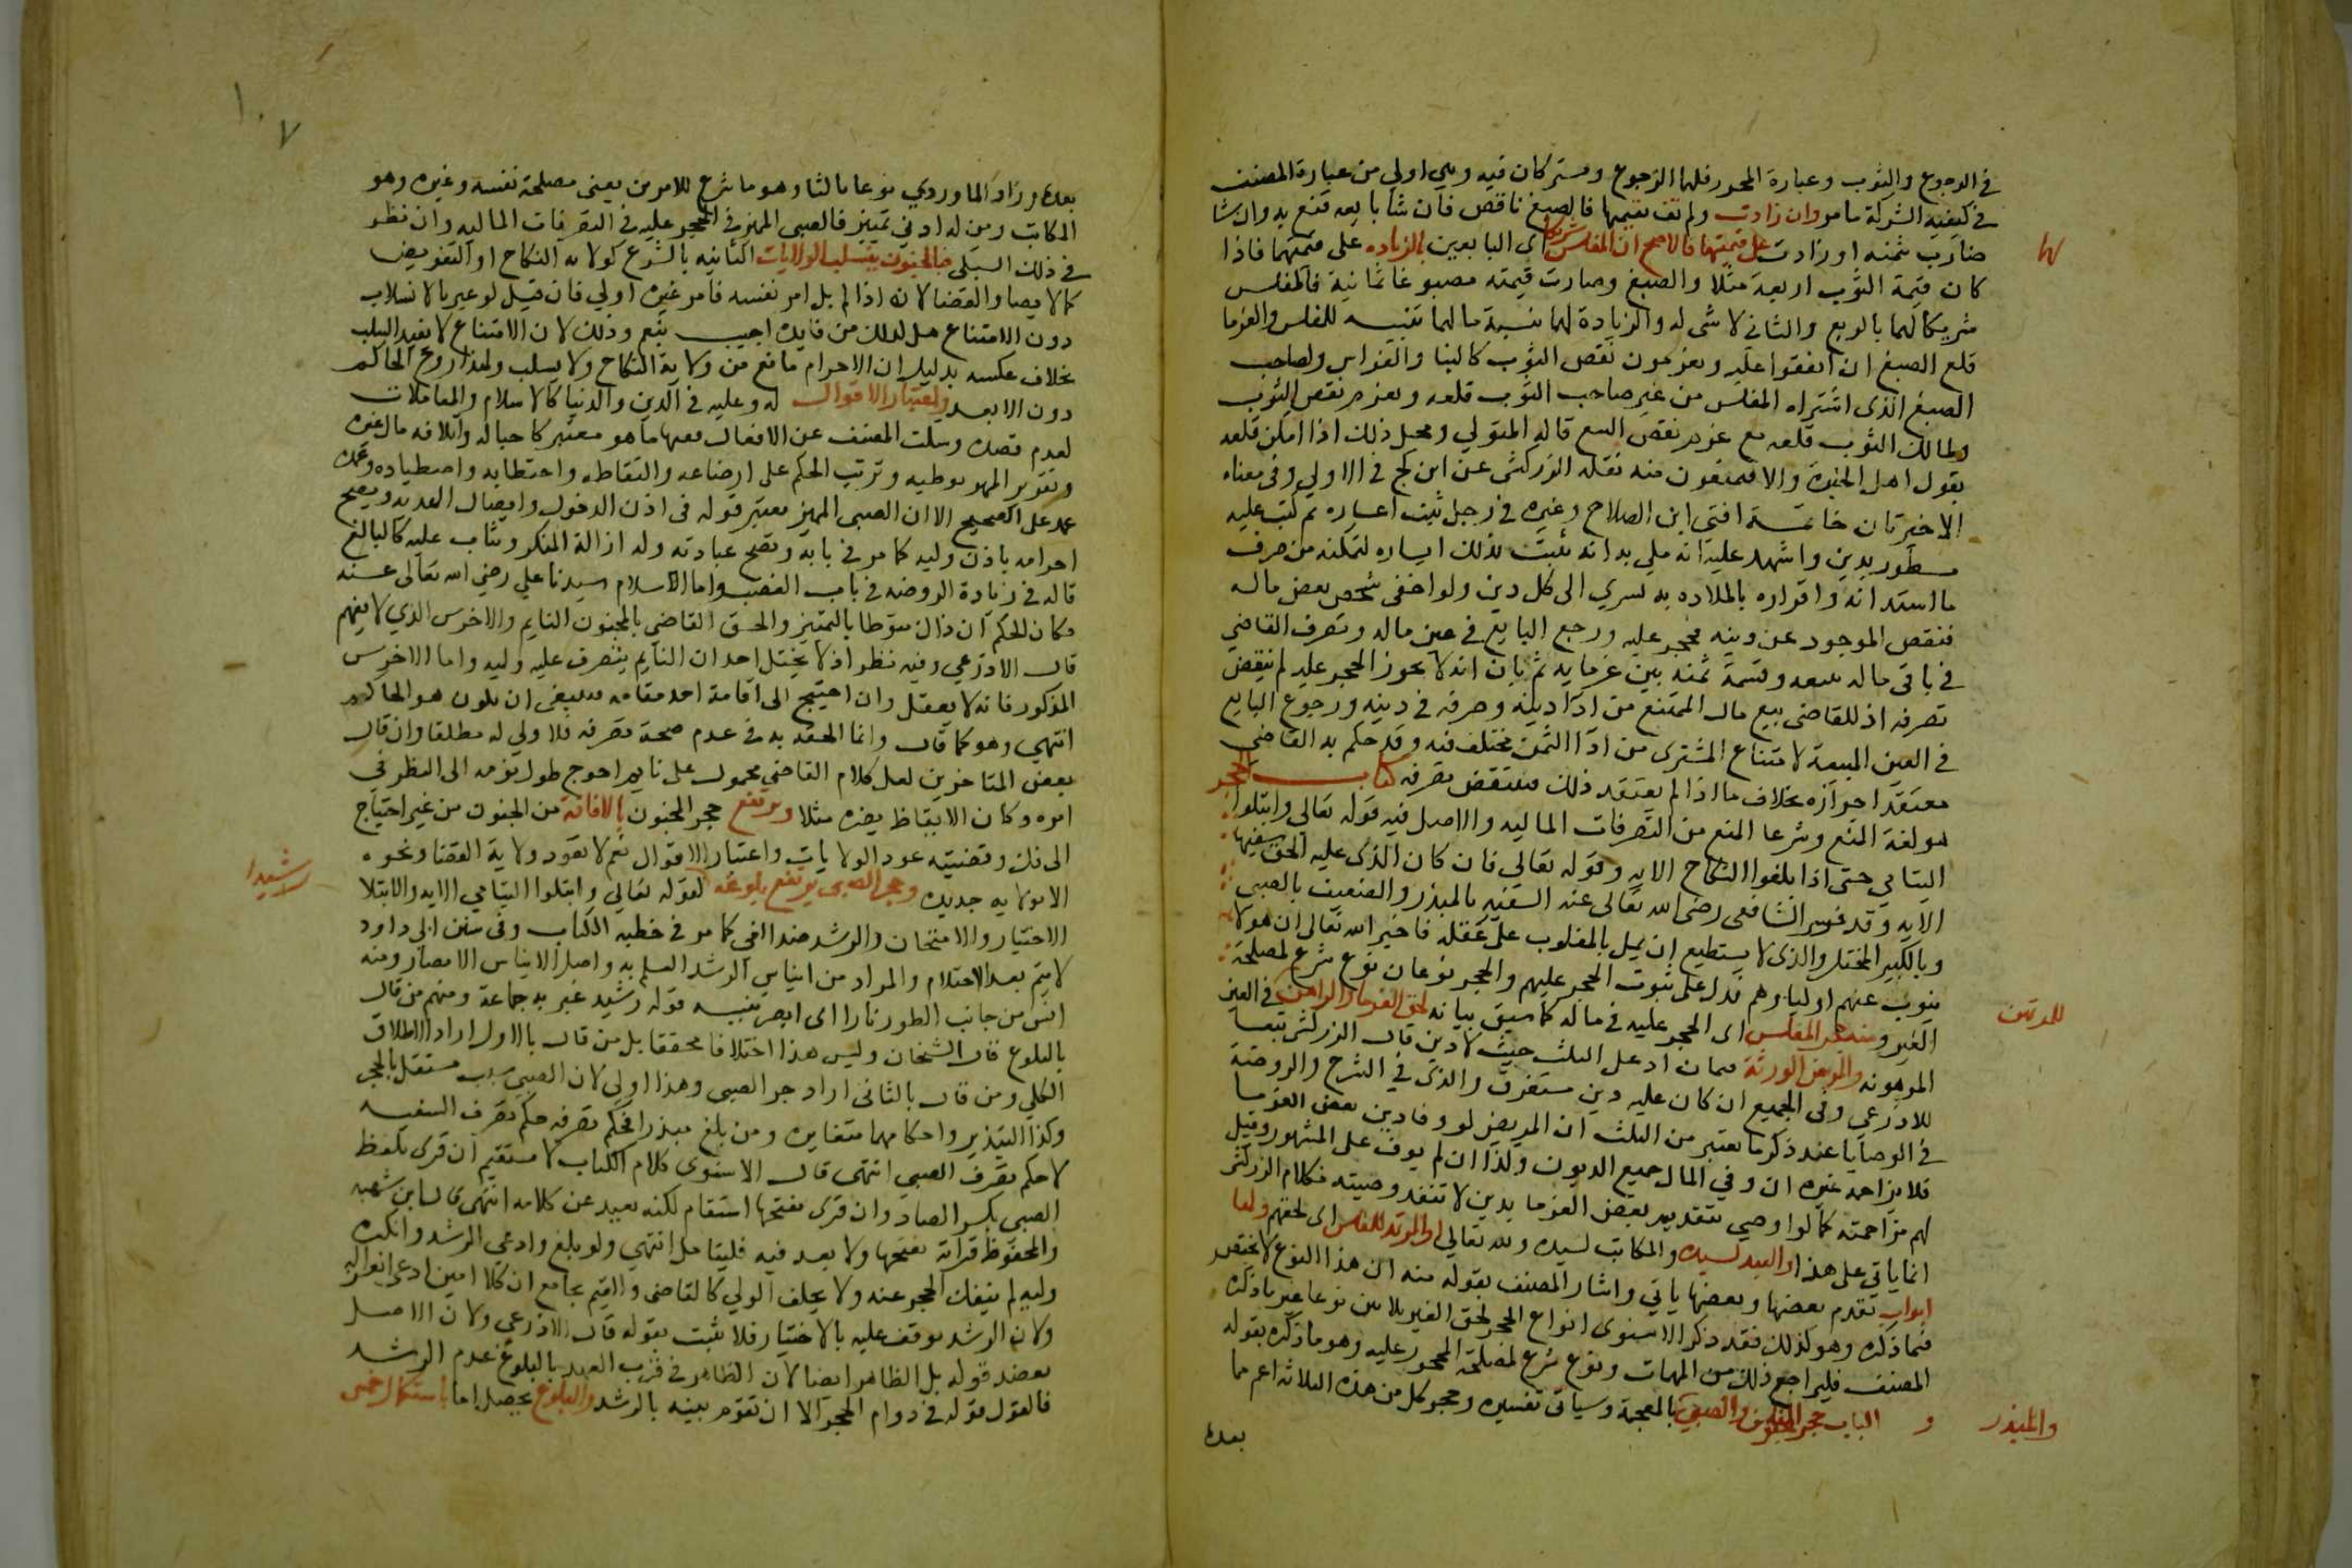 في الرجوع والثوب وعبارة المحرر فلهما الرجوع ومشتركان فيه وهي اولي من عبارة المصنف
في كيفية الشركة ما مر وان زادت ولم تف بقيمهما فالصبغ ناقص فان شا بايعه قنع به وان شا
ضارب بثمنه او زادت على قيمتهما فالاصح ان المفلس شريك اى البايعين بالزيادة على قيمتهما فاذا
لها
كان قيمة الثوب اربعة مثلا والصبغ وصارت قيمته مصبوغا ثمانية فالمفلس
شريكا لهما بالربع والثاني لا شى له والزيادة لهما بنسبة ما لهما تنبيه للمفلس والغرما
قلع الصبغ ان اتفقوا عليه ويغرمون نقص الثوب كالبنا والغراس ولصاحب
الصبغ الذى اشتراه المفلس من غير صاحب الثوب قلعه ويغرم نقص الثوب
ولمالك الثوب قلعه مع غرم نقص الصبغ قاله المتولي ومحل ذلك اذا امكن قلعه
بقول اهل الخبرة والا فيمنعون منه نقله الزركشى عن ابن كج في الاولي وفى معناه
الاخيرتان خاتمة افتى ابن الصلاح وغيره في رجل ثبت اعساره ثم كتب عليه
مسطور بدين واشهد عليه انه ملي به انه يثبت بذلك ايساره لتمكنه من صرف
ما استدانه واقراره بالملاءه به يسري الى كل دين ولو اخفى شخص بعض ماله
فنقص الموجود عن دينه فحجر عليه ورجع البايع في عين ماله وتصرف القاضي
في باقى ماله ببيعه وقسمة ثمنه بين غرمايه ثم بان انه لا يجوز الحجر عليه لم ينقض
تصرفه اذ للقاضى بيع مال الممتنع من اداء دينه وصرفه في دينه ورجوع البايع
في العين المبيعة لامتناع المشترى من اداا الثمن مختلف فيه وقد حكم به القاضي
معتقدا جوازه بخلاف ما اذا لم يعتقد ذلك فينتقض تصرفه كتاب الحجر
هو لغة المنع وشرعا المنع من التصرفات الماليه والاصل فيه قوله تعالي وابتلوا
اليتامي حتى اذا بلغوا النكاح الايه وقوله تعالي فان كان الذى عليه الحق سفيها
الايه وقد فسر الشافعى رضي الله تعالى عنه السفيه بالمبذر والضعيف بالصبى
وبالكبير المختل والذى لا يستطيع ان يمل بالمغلوب على عقله فاخبر الله تعالى ان هولا
ينوب عنهم اوليا وهم فدل على ثبوت الحجر عليهم والحجر نوعان نوع شرع لمصلحة
الغير ومنه حجر المفلس اى الحجر عليه في ماله كما سبق بيانه لحق الغرما والراهن في العين
للمرتهن
المرهونه والمريض للورثة فيما زاد على الثلث حيث لا دين قال الزركشى تبعا
للاذرعى وفى الجميع ان كان عليه دين مستغرق والذى في الشرح والروضة
في الوصايا عند ذكر ما يعتبر من الثلث ان المريض لو وفا دين بعض الغرما
فلا يزاحمه غيره ان وفي المال جميع الديون وكذا ان لم يوف على المشهور وقيل
لهم مزاحمته كما لو اوصي بتقديم بعض الغرما بدين لا تنفذ وصيته فكلام الزركشى
انما ياتي على هذا والعبد لسيده والمكاتب لسيده ولله تعالي والمرتد للمسلمين اى لحقهم ولها
ابواب تقدم بعضها وبعضها ياتي واشار المصنف بقوله منه ان هذا النوع لا ينحصر
فيما ذكره وهو كذلك فقد ذكر الاسنوى انواع الحجر لحق الغير ثلاثين نوعا غير ما ذكره
المصنف فليراجع ذلك من المهمات ونوع شرع لمصلحة المحجور عليه وهو ما ذكره بقوله
و الباب حجر المجنون والصبي بالمعجمة وسياتى تفسيره وحجر كل من هذه الثلاثة اعم مما
والمبذر
بعده
١٠٧
بعده وزاد الماوردي نوعا ثالثا وهو ما شرع للامرين يعنى مصلحة نفسه وغيره وهو
المكاتب ومن له ادنى تمييز فالصبى المميز في الحجر عليه في التصرفات الماليه وان نظر
في ذلك السبكى فبالجنون تنسلب الولايات الثابتة بالشرع كولاية النكاح او التفويض
كالايصا والقضا لانه اذا لم يل امر نفسه فامر غيره اولي فان قيل لو عبر بالانسلاب
دون الامتناع هل لذلك من فايدة اجيب بنعم وذلك لان الامتناع لا يفيد السلب
بخلاف عكسه بدليل ان الاحرام مانع من ولاية النكاح ولا يسلب ولهذا زوج الحاكم
دون الابعد واعتبار الاقوال له وعليه في الدين والدنيا كالاسلام والمعاملات
لعدم قصده وسكت المصنف عن الافعال فمنها ما هو معتبر كاحباله واتلافه مال غيره
وتقرير المهر بوطيه وترتب الحكم على ارضاعه والتقاطه واحتطابه واصطياده وعمده
عمد على الصحيح الا ان الصبى المميز يعتبر قوله في اذن الدخول وايصال الهديه ويصح
احرامه باذن وليه كما مر في بابه وتصح عبادته وله ازالة المنكر ويثاب عليه كالبالغ
قاله في زيادة الروضه في باب الغصب واما اسلام سيدنا علي رضي الله تعالى عنه
فكان الحكم اذ ذاك منوطا بالتمييز والحق القاضي بالمجنون النايم والاخرس الذي لا يفهم
قال الاذرعي وفيه نظر اذ لا يتخيل احد ان النايم يتصرف عليه وليه واما الاخرس
المذكور فانه لا يعقل وان احتيج الى اقامة احد مقامه فينبغى ان يكون هو الحاكم
انتهي وهو كما قال وانما الحقه به في عدم صحة تصرفه فلا ولي له مطلقا وان قال
بعض المتاخرين لعل كلام القاضي محمول على نايم احوج طول نومه الى النظر في
امره وكان الايقاظ يضره مثلا ويرتفع حجر المجنون بالافاقة من الجنون من غير احتياج
الى فك وقضيته عود الولايات واعتبار الاقوال نعم لا تعود ولاية القضا ونحوه
الا بولايه جديده وحجر الصبى يرتفع ببلوغه لقوله تعالي وابتلوا اليتامى الايه والابتلا
رشيدا
الاختبار والامتحان والرشد ضد الغي كما مر في خطبة الكتاب وفى سنن ابى داود
لا يتم بعد الاحتلام والمراد من ايناس الرشد العلم به واصل الايناس الابصار ومنه
انس من جانب الطور نارا اى ابصر تنبيه قوله رشيد عبر به جماعة ومنهم من قال
بالبلوغ قال الشيخان وليس هذا اختلافا محققا بل من قال بالاول اراد الاطلاق
الكلي ومن قال بالثانى اراد حجر الصبى وهذا اولى لان الصبي سبب مستقل بالحجر
وكذا التبذير واحكامهما متغايرة ومن بلغ مبذرا فحكم تصرفه حكم تصرف السفيه
لا حكم تصرف الصبي انتهى قال الاسنوى كلام الكتاب لا مستقيم ان قرى بلفظ
الصبي بكسر الصاد وان قرى بفتحها استقام لكنه بعيد عن كلامه انتهى قال ابن شهبه
والمحفوظ قراته بفتحها ولا بعد فيه فليتامل انتهي ولو بلغ وادعي الرشد وانكره
وليه لم ينفك الحجر عنه ولا يحلف الولي كالقاضى والقيم بجامع ان كلا امين ادعى انعزاله
ولان الرشد يوقف عليه بالاختبار فلا يثبت بقوله قال الاذرعي ولان الاصل
يعضد قوله بل الظاهر ايضا لان الظاهر في قريب العهد بالبلوغ عدم الرشد
فالقول قوله في دوام الحجر الا ان تقوم بينه بالرشد والبلوغ يحصل اما باستكمال خمس